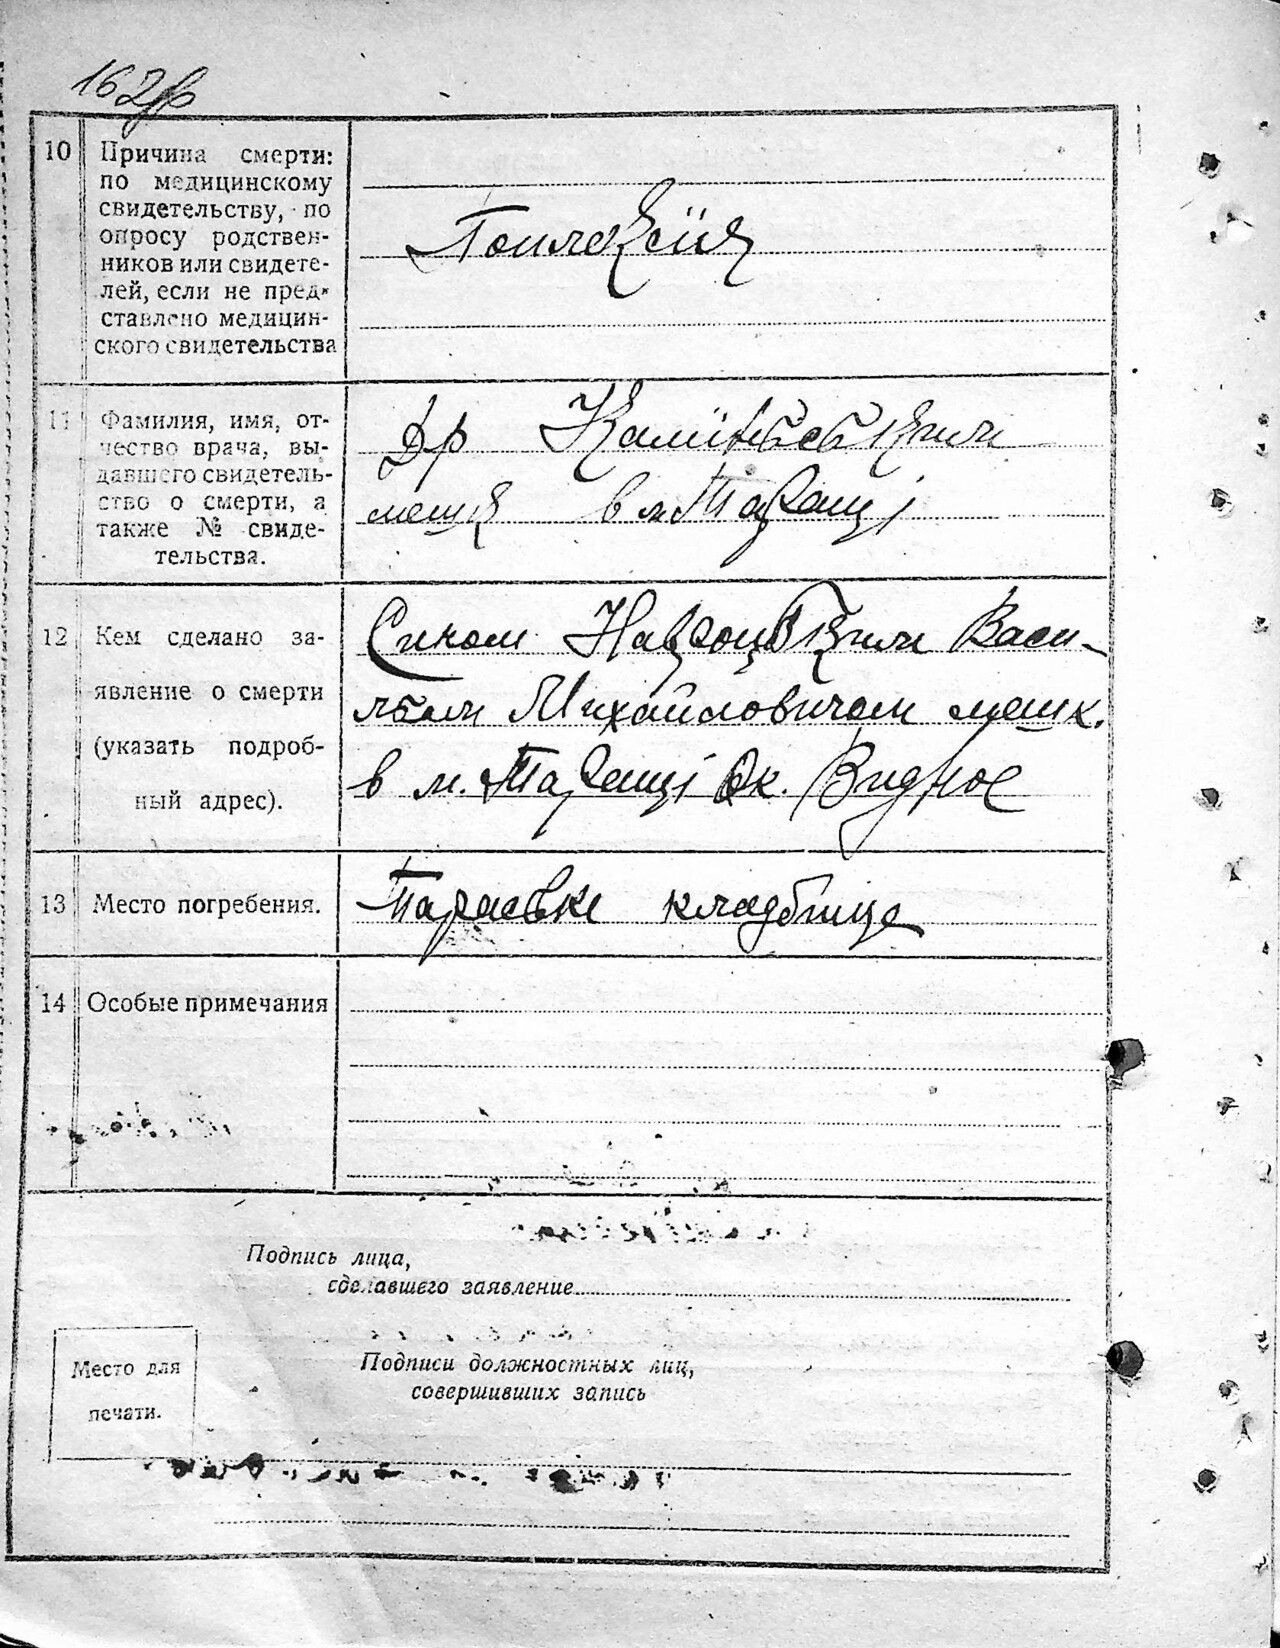 162
10 Причина смерти:
по медицинскому
свидетельству, по
опросу родствен-
ников или свидете-
лей, если не пред-
ставлено медицин-
ского свидетельства
11 Фамилия, имя, от-
чество врача, вы-
давшего свидетель-
ство о смерти, а
также № свиде-
тельства.
Др
в м. Таращі
12 Кем сделано за-
явление о смерти
(указать подроб-
ный адрес).
Сином Навроцьким Васи-
льом Михайловичом мешк.
в м. Таращі
13 Место погребения.
кладбище
14 Особые примечания
Подпись лица,
сделавшего заявление
Место для
печати.
Подписи должностных лиц,
совершивших запись